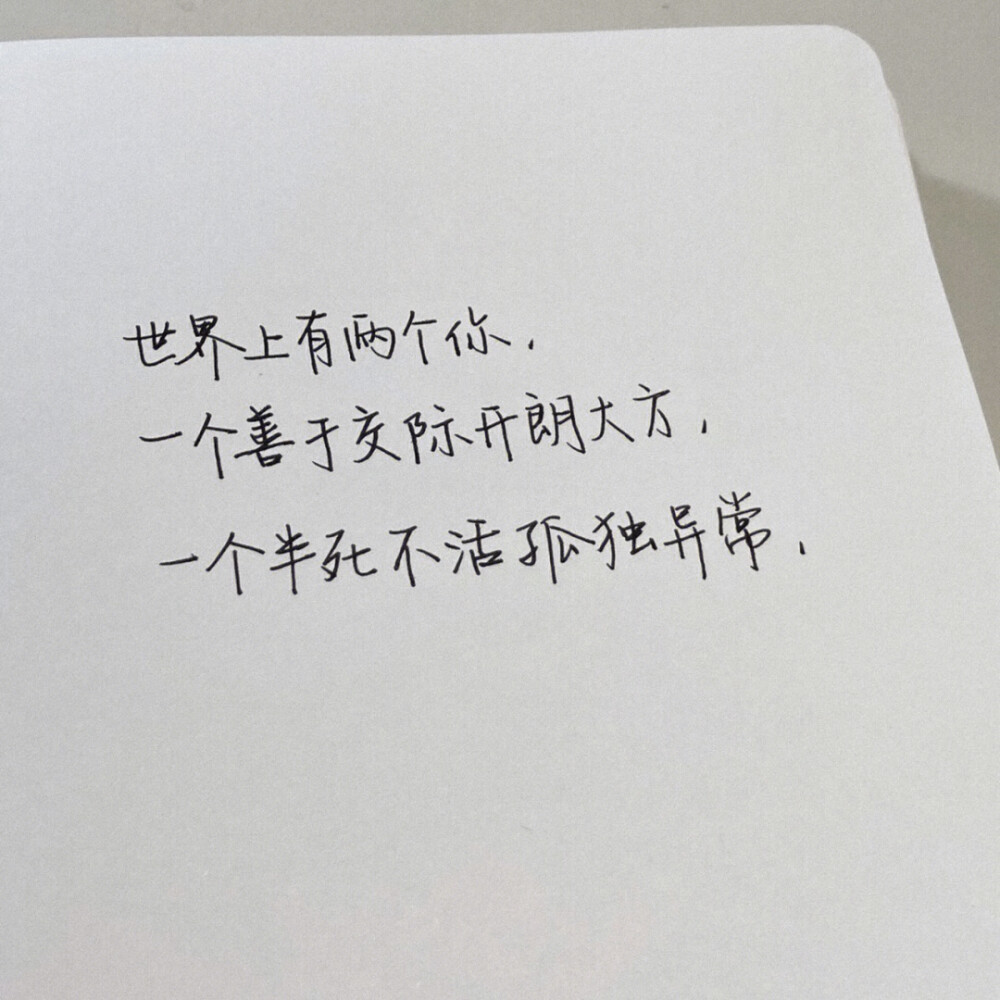 世界上有两个你.
一个善于交际开朗大方.
一个半死不活孤独异常.